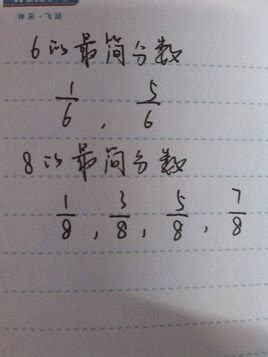 神采·飞扬
6的最简分数
1/6, 5/6
8的最简分数
1/8, 3/8, 5/8, 7/8